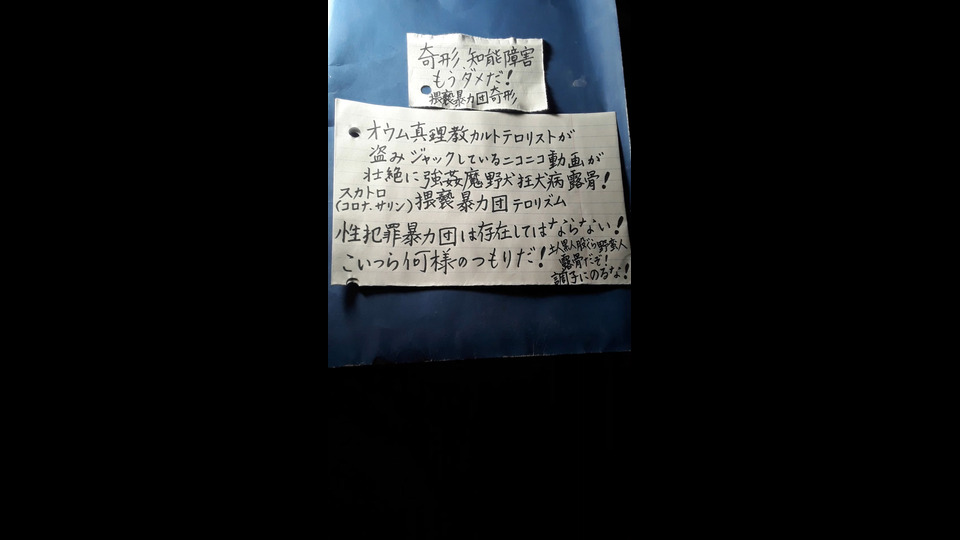 奇形 知能障害
もうダメだ!
猥褻暴力団奇形
オウム真理教カルトテロリストが
盗みジャックしているニコニコ動画が
壮絶に強姦魔野犬狂犬病露骨!
スカトロ
(コロナ.サリン)猥褻暴力団テロリズム
性犯罪暴力団は存在してはならない!
こいつら何様のつもりだ!
土人黒人股ぐら野蛮人
露骨だぞ!
調子にのるな!